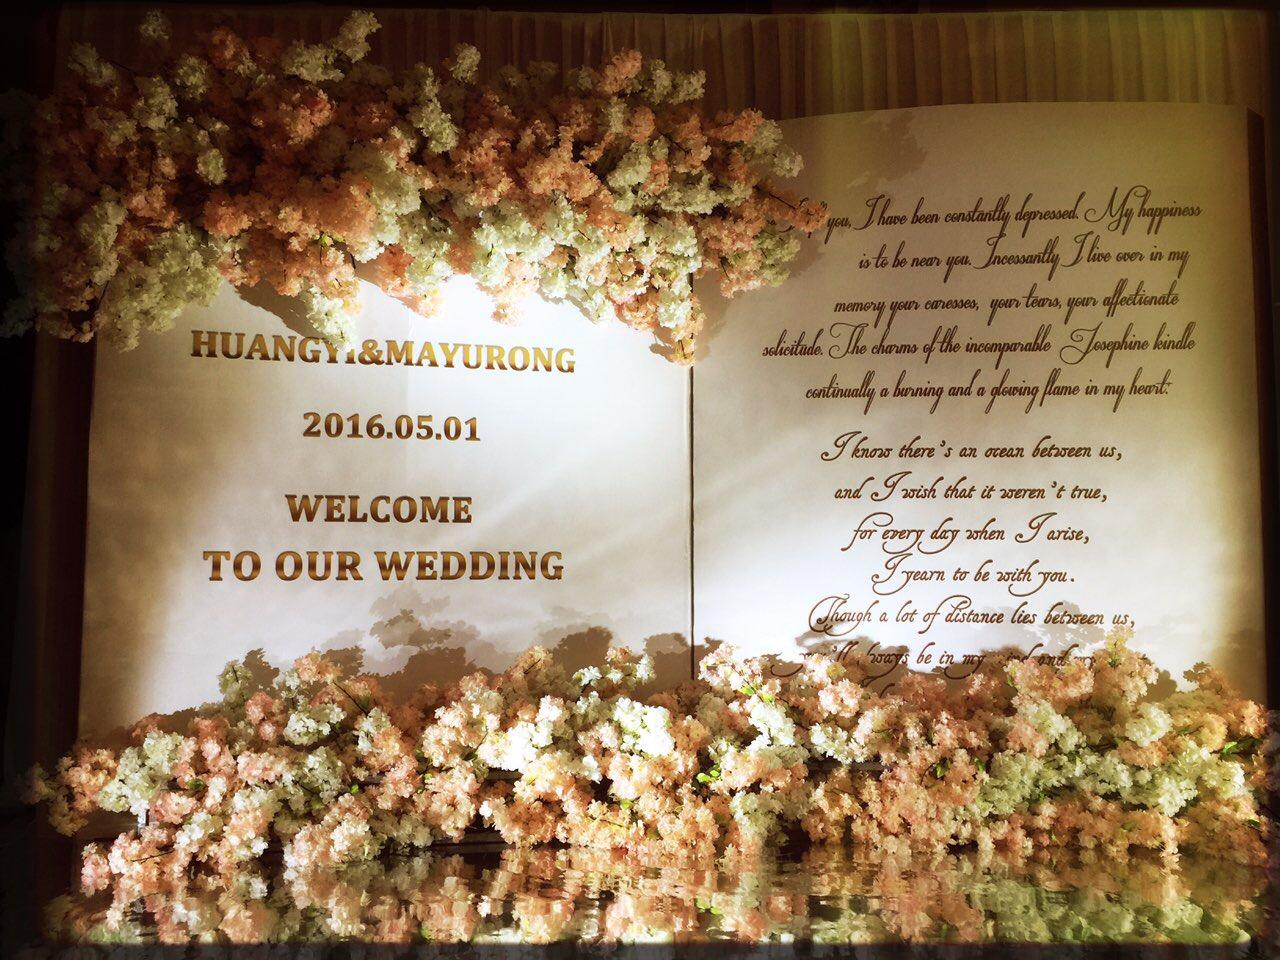 HUANGYI&MAYURONG
2016.05.01
WELCOME
TO OUR WEDDING
you, I have been constantly depressed. My happiness
is to be near you. Incessantly I live over in my
memory your caresses, your tears, your affectionate
solicitude. The charms of the incomparable Josephine kindle
continually a burning and a glowing flame in my heart:
I know there's an ocean between us,
and I wish that it weren't true,
for every day when I arise,
I yearn to be with you.
Though a lot of distance lies between us,
be in my